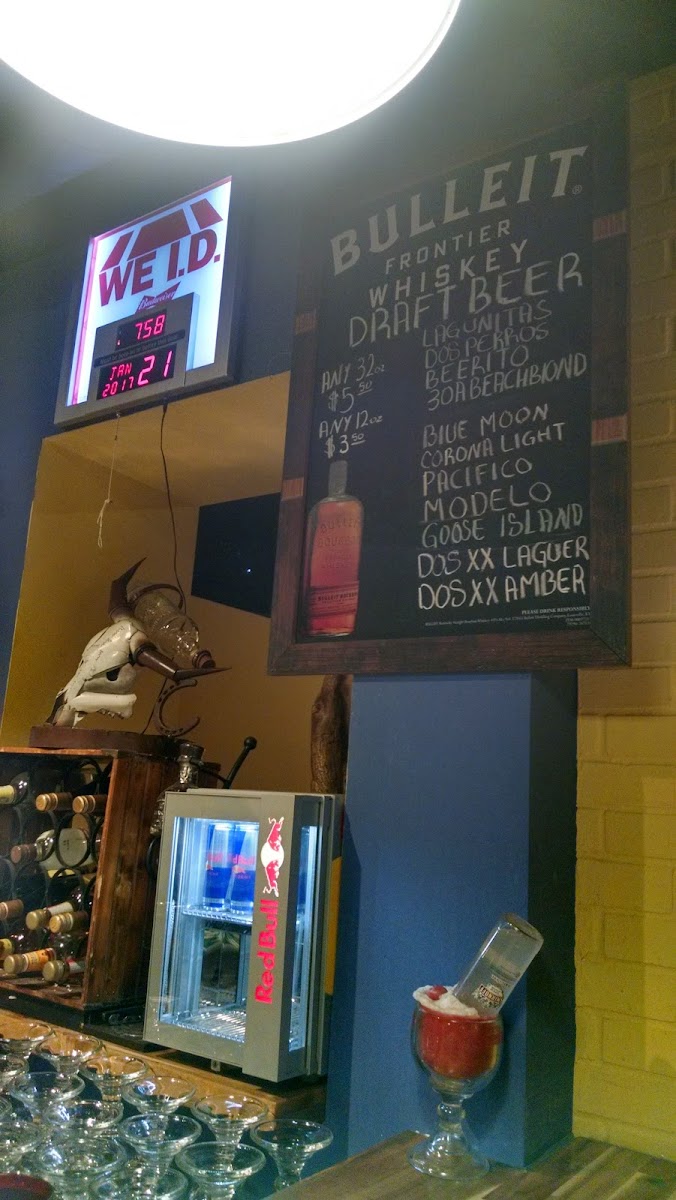 WE I.D.
Budweiser
758
JAN
2017 21
BULLEIT®
FRONTIER
WHISKEY
DRAFT BEER
ANY 32oz
$5.50
ANY 12oz
$3.50
LAGUNITAS
DOS PERROS
BEERITO
30A BEACH BlOND
BlUE MOON
CORONA LIGHT
PACIFICO
MODELO
GOOSE ISLAND
DOS XX LAGUER
DOS XX AMBER
BULLEIT
BOURBON
PLEASE DRINK RESPONSIBLY
Red Bull